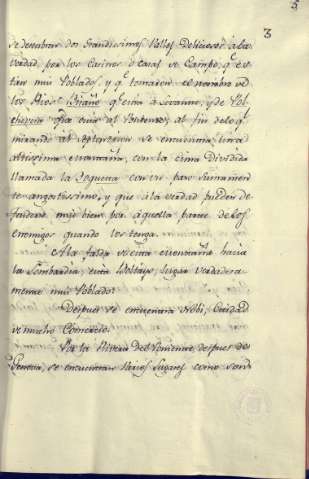 3
5
se descubren dos Grandisimos Valles deliciosos, à la
verdad, por los Casinos ó Casas de Campo, qe es
tan mui Poblados, y qe tomaron el nombre de
los Rios: que cini à Levante, y de Pol
chevera qe à cini al Poniente, al fin de los qe
mirando al Septentrion se encuentra una
altissima montaña, con la cima Dividida
llamada la Boqueta con un paso sumamen
te angostissimo, y que à la verdad pueden de
faiderse mui bien por aquella parte de los
enemigos quando los tenga.
A la falda de esta montaña hacia
la Lombardia, esta Voltayo, Lugar verdadera
mente mui Poblado.
Despues se encuentra Nobi, Ciudad
de mucho Comercio.
Por la Rivera del Poniente, despues de
Genova, se encuentran varios Lugares como son